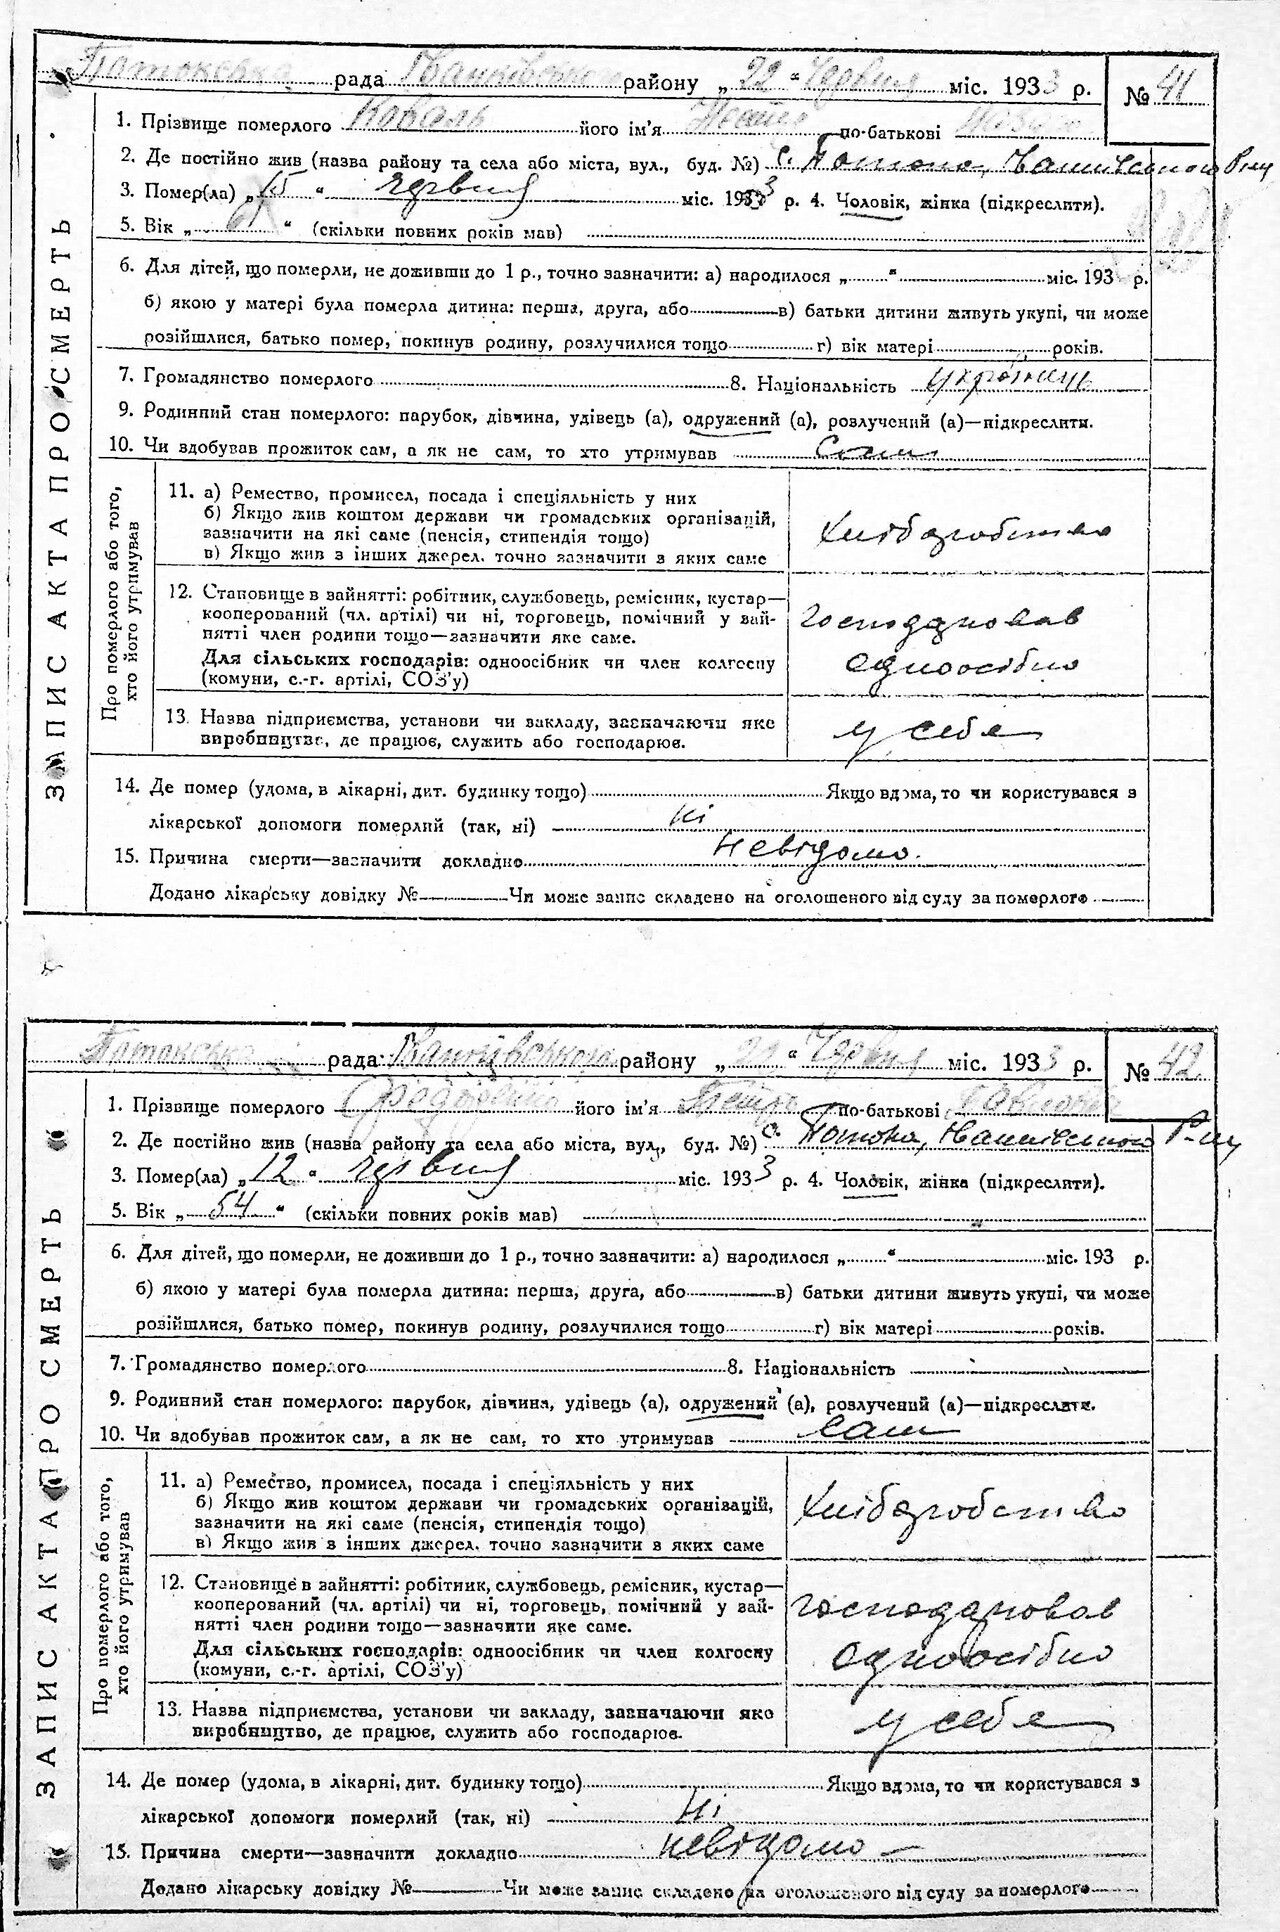 рада Іванківського району „ 22 “ Червня міс. 1933 р. № 41
1. Прізвище померлого Коваль його ім'я по-батькові
2. Де постійно жив (назва району та села або міста, вул., буд. №) с. Потоки, Іванківського Р-ну
3. Помер(ла) „ 15 “ червня міс. 1933 р. 4. Чоловік, жінка (підкреслити).
5. Вік „ “ (скільки повних років мав)
6. Для дітей, що померли, не доживши до 1 р., точно зазначити: а) народилося „ “ міс. 193 р.
б) якою у матері була померла дитина: перша, друга, або в) батьки дитини живуть укупі, чи може
розійшлися, батько помер, покинув родину, розлучилися тощо г) вік матері років.
7. Громадянство померлого 8. Національність українець
9. Родинний стан померлого: парубок, дівчина, удівець (а), одружений (а), розлучений (а)—підкреслити.
10. Чи здобував прожиток сам, а як не сам, то хто утримував Сам
11. а) Ремество, промисел, посада і спеціяльність у них
б) Якщо жив коштом держави чи громадських організацій,
зазначити на які саме (пенсія, стипендія тощо)
в) Якщо жив з інших джерел, точно зазначити з яких саме
Хліборобство
12. Становище в зайнятті: робітник, службовець, ремісник, кустар—
кооперований (чл. артілі) чи ні, торговець, помічний у зай-
нятті член родини тощо—зазначити яке саме.
Для сільських господарів: одноосібник чи член колгоспу
(комуни, с.-г. артілі, СОЗ'у)
господарював
одноосібно
13. Назва підприємства, установи чи закладу, зазначаючи яке
виробництво, де працює, служить або господарює.
у себе
14. Де помер (удома, в лікарні, дит. будинку тощо) Якщо вдома, то чи користувався з
лікарської допомоги померлий (так, ні) ні
15. Причина смерти—зазначити докладно невідомо.
Додано лікарську довідку № Чи може запис складено на оголошеного від суду за померлого
ЗАПИС АКТА ПРО СМЕРТЬ
Про померлого або того,
хто його утримував
Потокська рада Іванківського району „ 22 “ Червня міс. 1933 р. № 42
1. Прізвище померлого його ім'я Петро по-батькові
2. Де постійно жив (назва району та села або міста, вул., буд. №) с. Потоки, Іванківського Р-ну
3. Помер(ла) „ 12 “ червня міс. 1933 р. 4. Чоловік, жінка (підкреслити).
5. Вік „ 54 “ (скільки повних років мав)
6. Для дітей, що померли, не доживши до 1 р., точно зазначити: а) народилося „ “ міс. 193 р.
б) якою у матері була померла дитина: перша, друга, або в) батьки дитини живуть укупі, чи може
розійшлися, батько помер, покинув родину, розлучилися тощо г) вік матері років.
7. Громадянство померлого 8. Національність
9. Родинний стан померлого: парубок, дівчина, удівець (а), одружений (а), розлучений (а)—підкреслити.
10. Чи здобував прожиток сам, а як не сам, то хто утримував сам
11. а) Ремество, промисел, посада і спеціяльність у них
б) Якщо жив коштом держави чи громадських організацій,
зазначити на які саме (пенсія, стипендія тощо)
в) Якщо жив з інших джерел, точно зазначити з яких саме
Хліборобство
12. Становище в зайнятті: робітник, службовець, ремісник, кустар—
кооперований (чл. артілі) чи ні, торговець, помічний у зай-
нятті член родини тощо—зазначити яке саме.
Для сільських господарів: одноосібник чи член колгоспу
(комуни, с.-г. артілі, СОЗ'у)
господарював
одноосібно
13. Назва підприємства, установи чи закладу, зазначаючи яке
виробництво, де працює, служить або господарює.
у себе
14. Де помер (удома, в лікарні, дит. будинку тощо) Якщо вдома, то чи користувався з
лікарської допомоги померлий (так, ні) Ні
15. Причина смерти—зазначити докладно невідомо
Додано лікарську довідку № Чи може запис складено на оголошеного від суду за померлого
ЗАПИС АКТА ПРО СМЕРТЬ
Про померлого або того,
хто його утримував